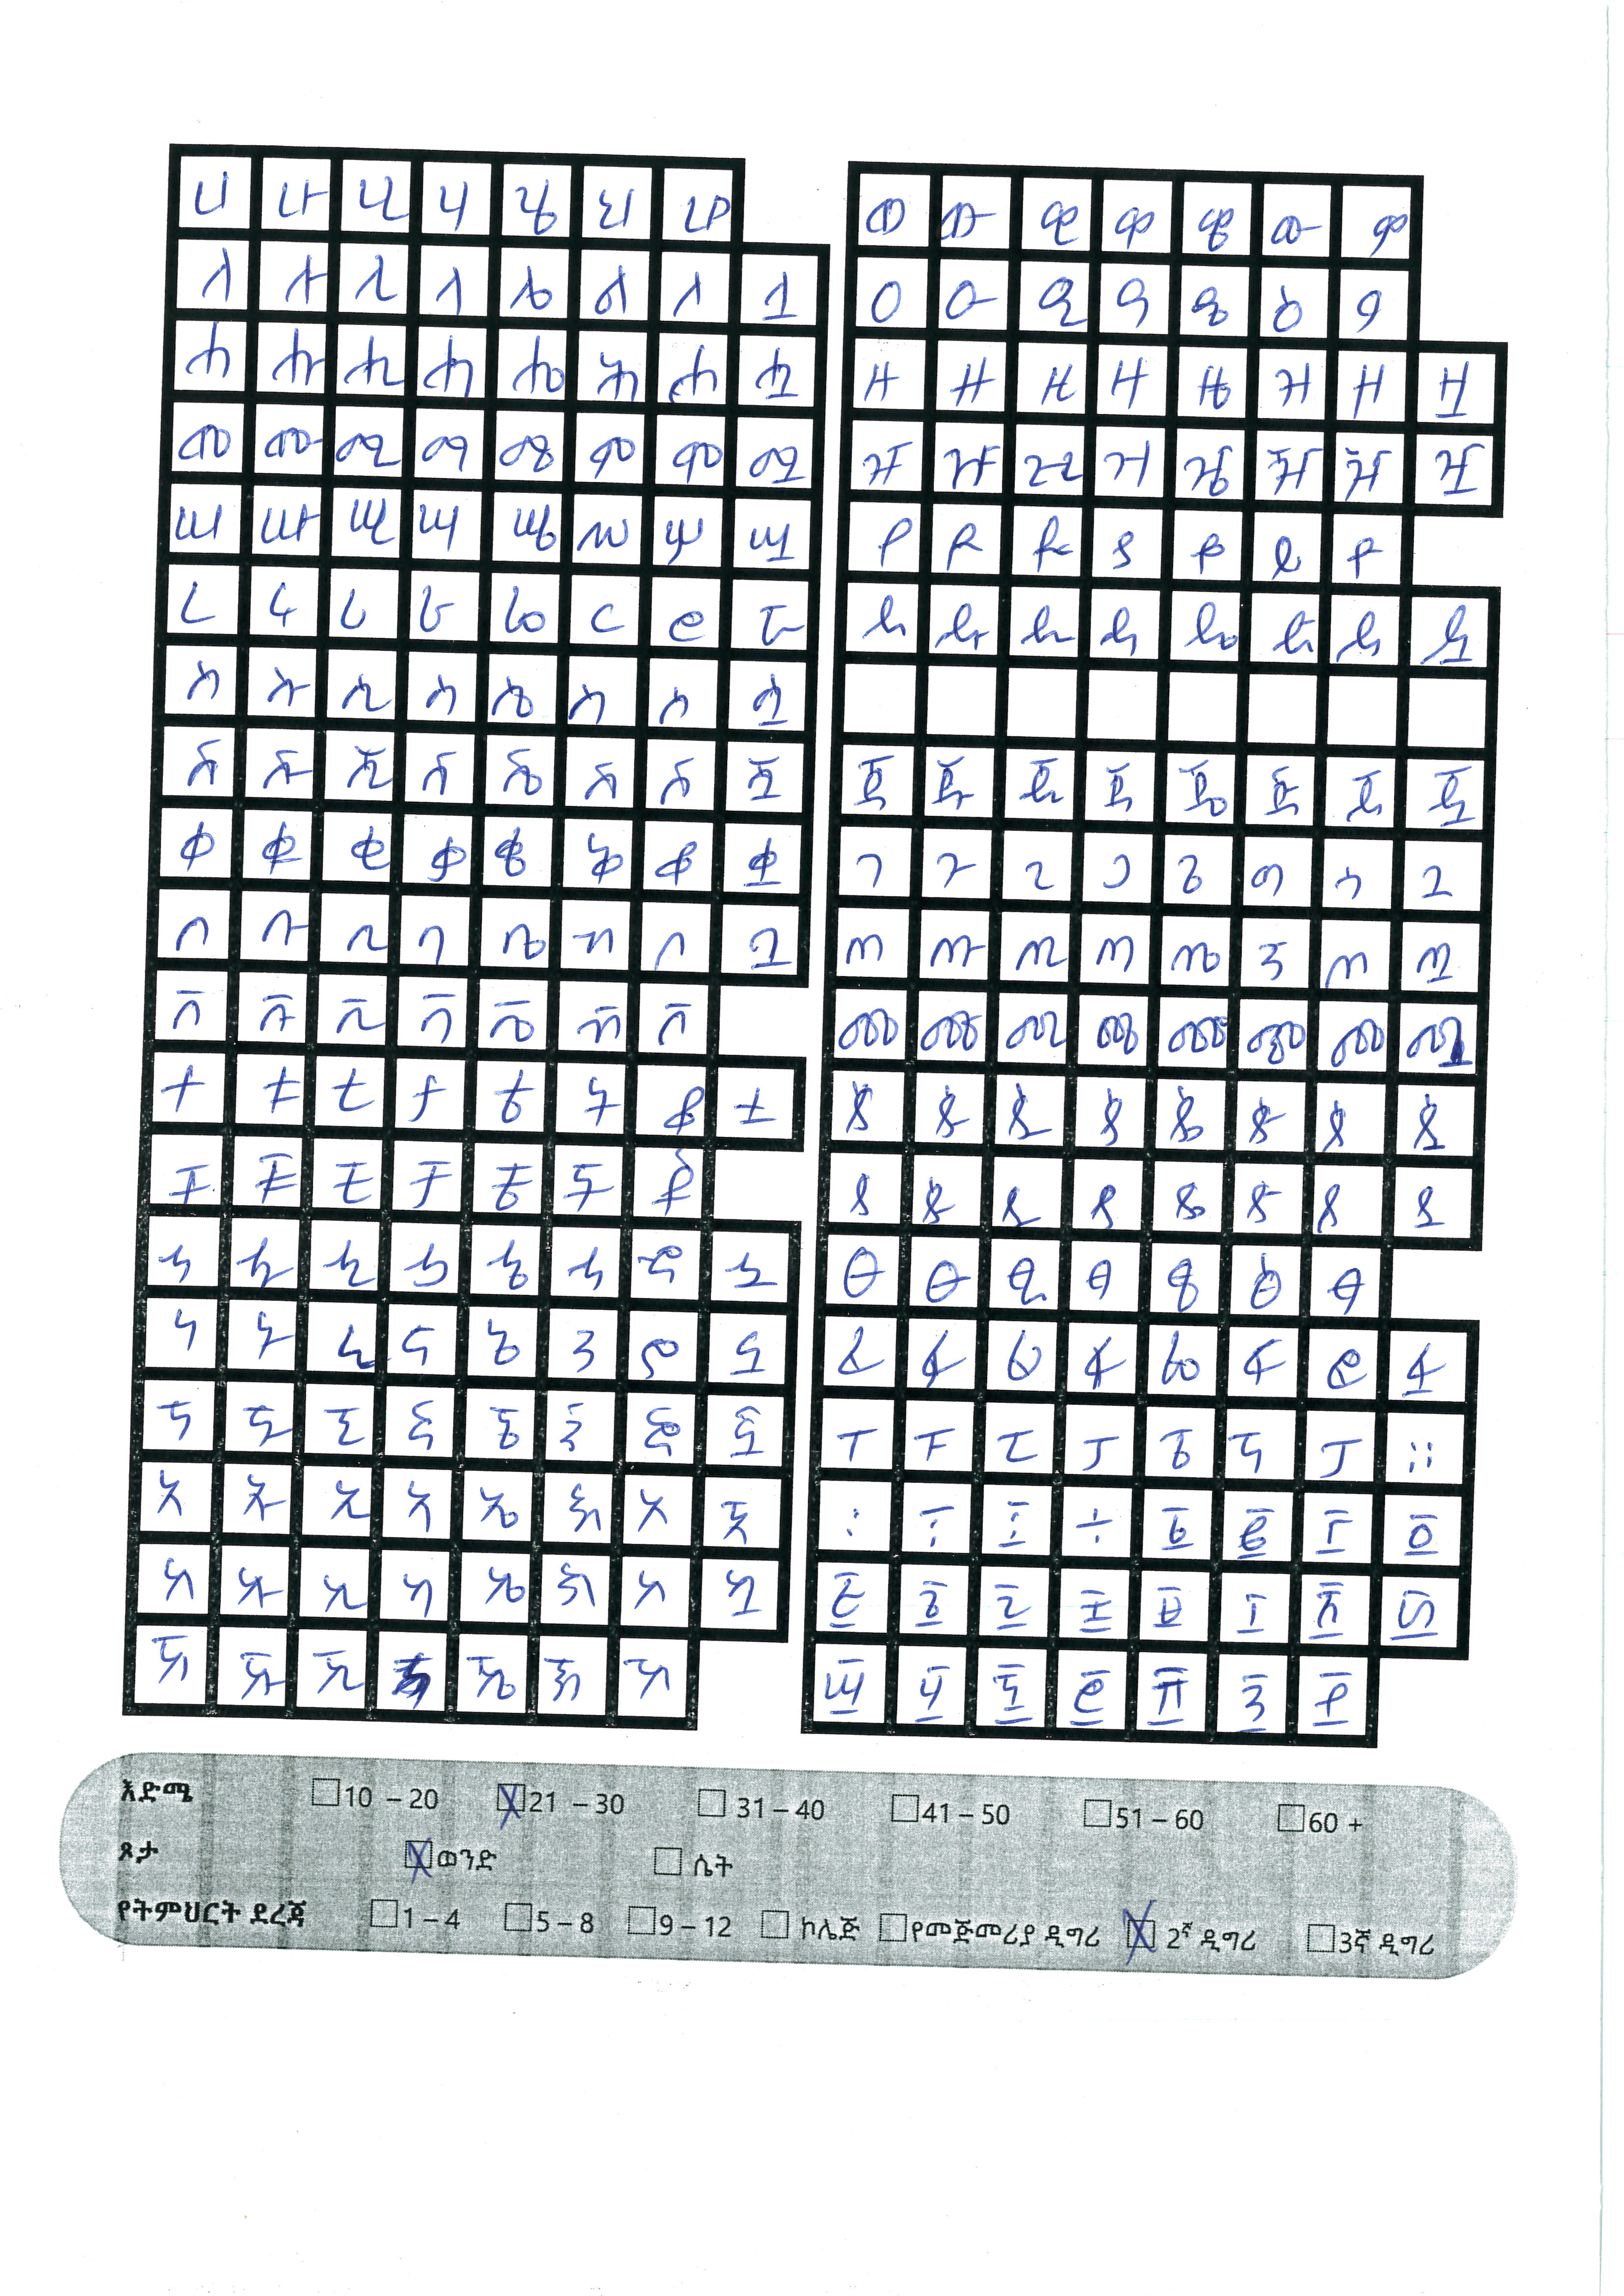 ሀ ሁ ሂ ሃ ሄ ህ ሆ
ለ ሉ ሊ ላ ሌ ል ሎ ሏ
ሐ ሑ ሒ ሓ ሔ ሕ ሖ ሗ
መ ሙ ሚ ማ ሜ ም ሞ ሟ
ሠ ሡ ሢ ሣ ሤ ሥ ሦ ሧ
ረ ሩ ሪ ራ ሬ ር ሮ ሯ
ሰ ሱ ሲ ሳ ሴ ስ ሶ ሷ
ሸ ሹ ሺ ሻ ሼ ሽ ሾ ሿ
ቀ ቁ ቂ ቃ ቄ ቅ ቆ ቋ
በ ቡ ቢ ባ ቤ ብ ቦ ቧ
ቨ ቩ ቪ ቫ ቬ ቭ ቮ
ተ ቱ ቲ ታ ቴ ት ቶ ቷ
ቸ ቹ ቺ ቻ ቼ ች ቾ
ኀ ኁ ኂ ኃ ኄ ኅ ኆ ኋ
ነ ኑ ኒ ና ኔ ን ኖ ኗ
ኘ ኙ ኚ ኛ ኜ ኝ ኞ ኟ
አ ኡ ኢ ኣ ኤ እ ኦ ኧ
ከ ኩ ኪ ካ ኬ ክ ኮ ኳ
ኸ ኹ ኺ ኼ ኽ ኾ
ወ ዉ ዊ ዋ ዌ ው ዎ
ዐ ዑ ዒ ዓ ዔ ዕ ዖ
ዘ ዙ ዚ ዛ ዜ ዝ ዞ ዟ
ዠ ዡ ዢ ዣ ዤ ዥ ዦ ዧ
የ ዩ ዪ ያ ዬ ይ ዮ
ደ ዱ ዲ ዳ ዴ ድ ዶ ዷ
ጀ ጁ ጂ ጃ ጄ ጅ ጆ ጇ
ገ ጉ ጊ ጋ ጌ ግ ጎ ጓ
ጠ ጡ ጢ ጣ ጤ ጥ ጦ ጧ
ጨ ጩ ጪ ጫ ጬ ጭ ጮ ጯ
ጰ ጱ ጲ ጳ ጴ ጵ ጶ ጷ
ጸ ጹ ጺ ጻ ጼ ጽ ጾ ጿ
ፀ ፁ ፂ ፃ ፄ ፅ ፆ
ፈ ፉ ፊ ፋ ፌ ፍ ፎ ፏ
ፐ ፑ ፒ ፓ ፔ ፕ ፖ ።
፡ ፣ ፤ ÷ ፩ ፪ ፫ ፬
፭ ፮ ፯ ፰ ፱ ፲ ፳ ፴
፵ ፶ ፷ ፸ ፹ ፺ ፻
እድሜ 10 – 20 21 – 30 31 – 40 41 – 50 51 – 60 60 +
ጾታ ወንድ ሴት
የትምህርት ደረጃ 1 – 4 5 – 8 9 – 12 ኮሌጅ የመጅመሪያ ዲግሪ 2ኛ ዲግሪ 3ኛ ዲግሪ